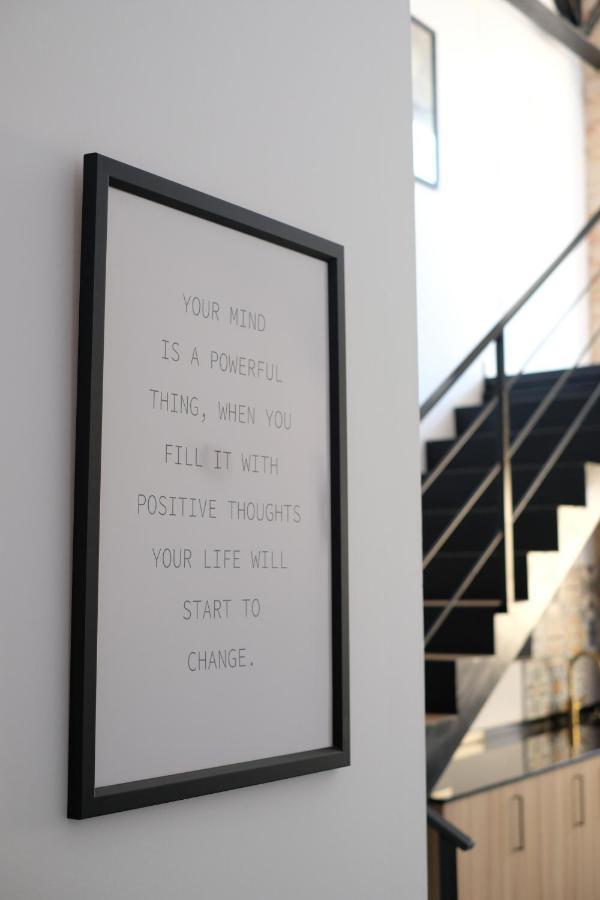 YOUR MIND
IS A POWERFUL
THING, WHEN YOU
FILL IT WITH
POSITIVE THOUGHTS
YOUR LIFE WILL
START TO
CHANGE.